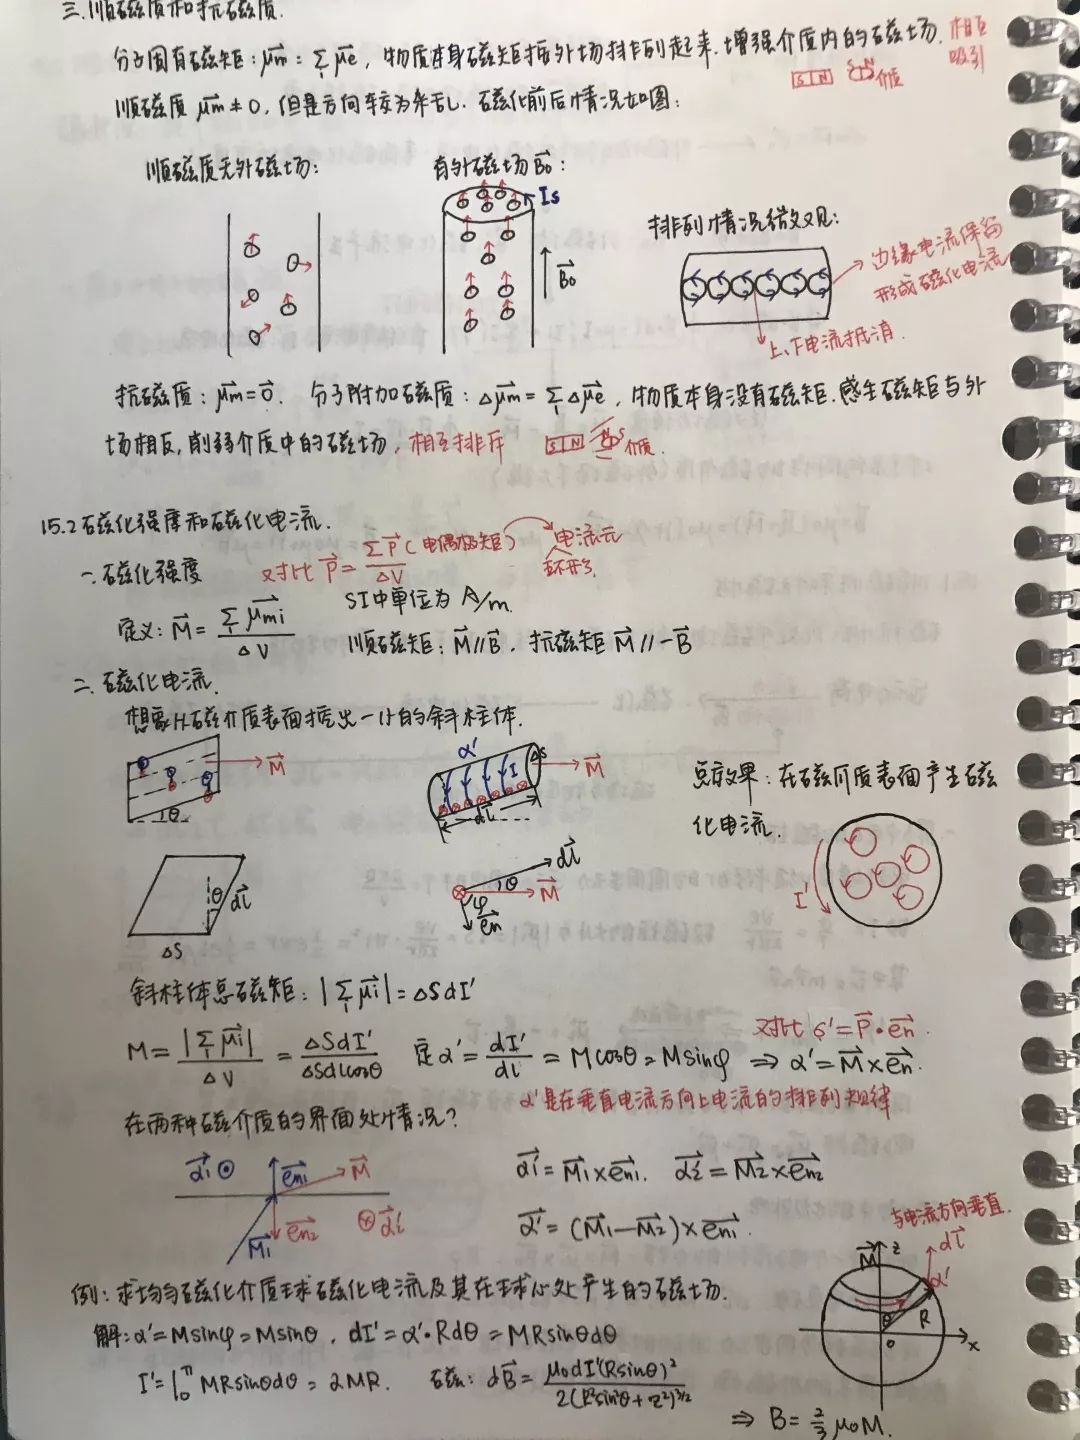 三.顺磁质和抗磁质.
分子固有磁矩:μm⃗ = Σᵢ μe⃗, 物质本身磁矩按外场排列起来.增强介质内的磁场. 相互吸引
S N 介质
顺磁质 μm⃗ ≠ 0, 但是方向较为杂乱. 磁化前后情况如图:
顺磁质无外磁场: 有外磁场B₀⃗:
Is
B₀⃗
排列情况微观:
边缘电流保留
形成磁化电流
上、下电流抵消.
抗磁质: μm⃗ = 0⃗. 分子附加磁质: Δμm⃗ = Σᵢ Δμe⃗, 物质本身没有磁矩.感生磁矩与外
场相反,削弱介质中的磁场, 相互排斥 S N 介质.
15.2 磁化强度和磁化电流.
一.磁化强度 对比 P⃗ = ΣP⃗(电偶极矩)/ΔV 电流元 环形
定义: M⃗ = Σᵢ μmi⃗/ΔV SI中单位为 A/m.
顺磁矩: M⃗∥B⃗, 抗磁矩 M⃗∥-B⃗
二.磁化电流.
想象从磁介质表面挖出一小的斜柱体.
M⃗ θ
α' I ΔS M⃗ dl
总效果: 在磁介质表面产生磁
化电流.
I'
θ dl⃗ ΔS
dl⃗ θ M⃗ φ en⃗
斜柱体总磁矩: |Σᵢ μi⃗| = ΔSdI'
对比 σ' = P⃗·en⃗.
M = |Σᵢ μi⃗|/ΔV = ΔSdI'/ΔSdlcosθ 定 α' = dI'/dl = Mcosθ = Msinφ ⇒ α⃗' = M⃗×en⃗.
α'是在垂直电流方向上电流的排列规律
在两种磁介质的界面处情况?
α₁'⃗ ⊙ en₁⃗ M⃗
M₁⃗ en₂⃗ ⊗ α₂'⃗
α₁'⃗ = M₁⃗×en₁⃗. α₂'⃗ = M₂⃗×en₂⃗
α'⃗ = (M₁⃗-M₂⃗)×en₁⃗.
与电流方向垂直.
M⃗ z dl⃗ α' θ R O x
例: 求均匀磁化介质球磁化电流及其在球心处产生的磁场.
解: α' = Msinφ = Msinθ, dI' = α'·Rdθ = MRsinθdθ
I' = ∫₀^π MRsinθdθ = 2MR. 磁: dB⃗ = μ₀dI'(Rsinθ)²/2(R²sin²θ+z²)^3/2
⇒ B = 2/3 μ₀M.